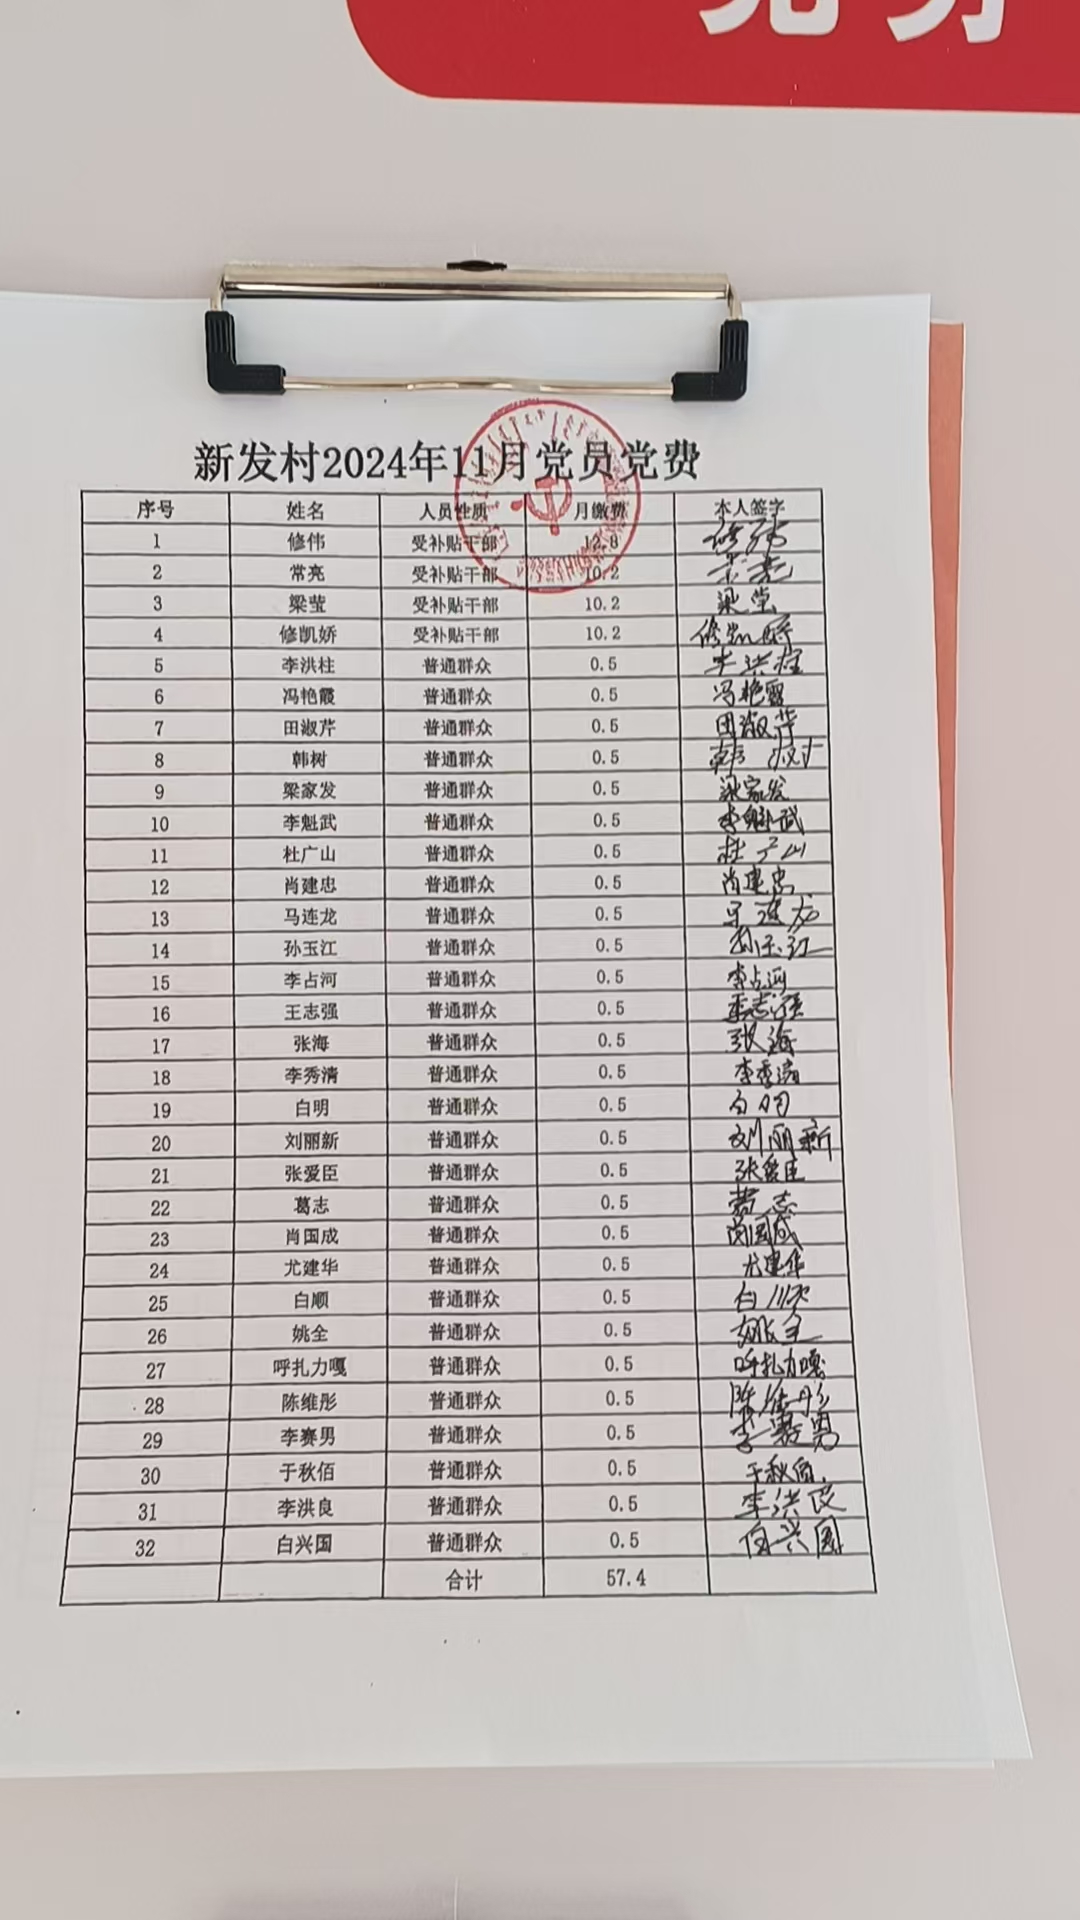 党务
新发村2024年11月党员党费
序号 姓名 人员性质 月缴费 本人签字
1 修伟 受补贴干部 12.8 修伟
2 常亮 受补贴干部 10.2 常亮
3 梁莹 受补贴干部 10.2 梁莹
4 修凯娇 受补贴干部 10.2 修凯娇
5 李洪柱 普通群众 0.5 李洪柱
6 冯艳霞 普通群众 0.5 冯艳霞
7 田淑芹 普通群众 0.5 田淑芹
8 韩树 普通群众 0.5 韩树
9 梁家发 普通群众 0.5 梁家发
10 李魁武 普通群众 0.5 李魁武
11 杜广山 普通群众 0.5 杜广山
12 肖建忠 普通群众 0.5 肖建忠
13 马连龙 普通群众 0.5 马连龙
14 孙玉江 普通群众 0.5 孙玉江
15 李占河 普通群众 0.5 李占河
16 王志强 普通群众 0.5 王志强
17 张海 普通群众 0.5 张海
18 李秀清 普通群众 0.5 李秀清
19 白明 普通群众 0.5 白明
20 刘丽新 普通群众 0.5 刘丽新
21 张爱臣 普通群众 0.5 张爱臣
22 葛志 普通群众 0.5 葛志
23 肖国成 普通群众 0.5 肖国成
24 尤建华 普通群众 0.5 尤建华
25 白顺 普通群众 0.5 白顺
26 姚全 普通群众 0.5 姚全
27 呼扎力嘎 普通群众 0.5 呼扎力嘎
28 陈维彤 普通群众 0.5 陈维彤
29 李赛男 普通群众 0.5 李赛男
30 于秋佰 普通群众 0.5 于秋佰
31 李洪良 普通群众 0.5 李洪良
32 白兴国 普通群众 0.5 白兴国
合计 57.4